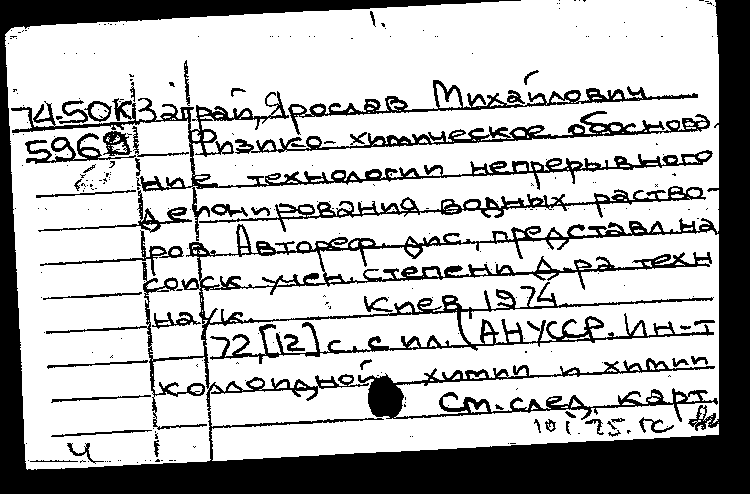 1.
74-50К Заграй, Ярослав Михайлович
5969 Физико-химическое обоснова
ние технологии непрерывного
депонирования водных раство-
ров. Автореф. дис., представл. на
соиск. учен. степени д-ра техн
наук. Киев, 1974.
72, [12] с. с ил. (АН УССР. Ин-т
коллоидной химии и химии
См. след. карт.
Ч